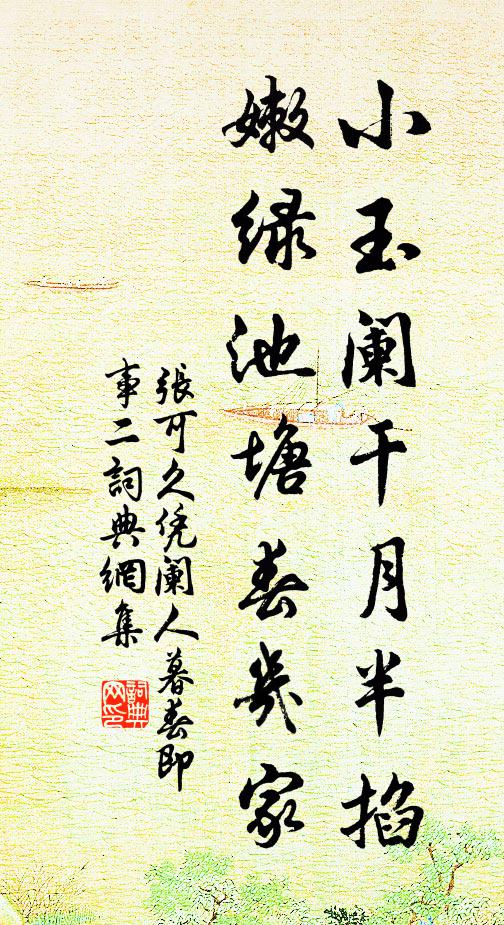 小玉阑干月半掐
嫩绿池塘春几家
張可久凭阑人暮春即
事二詞典網集
詞典网印